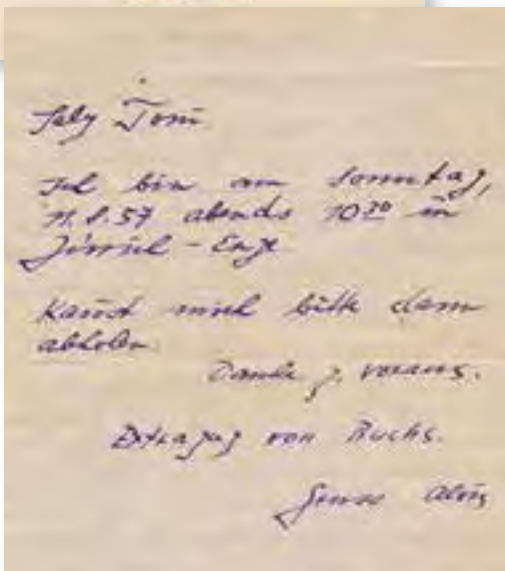 Saly Toni
Ich bin am Sonntag,
11.8.57 abends 10 30 in
Zürich-Enge
Kanst mich bitte dann
abholen.
Danke z. voraus.
Extrazug von Buchs.
Gruss Alois